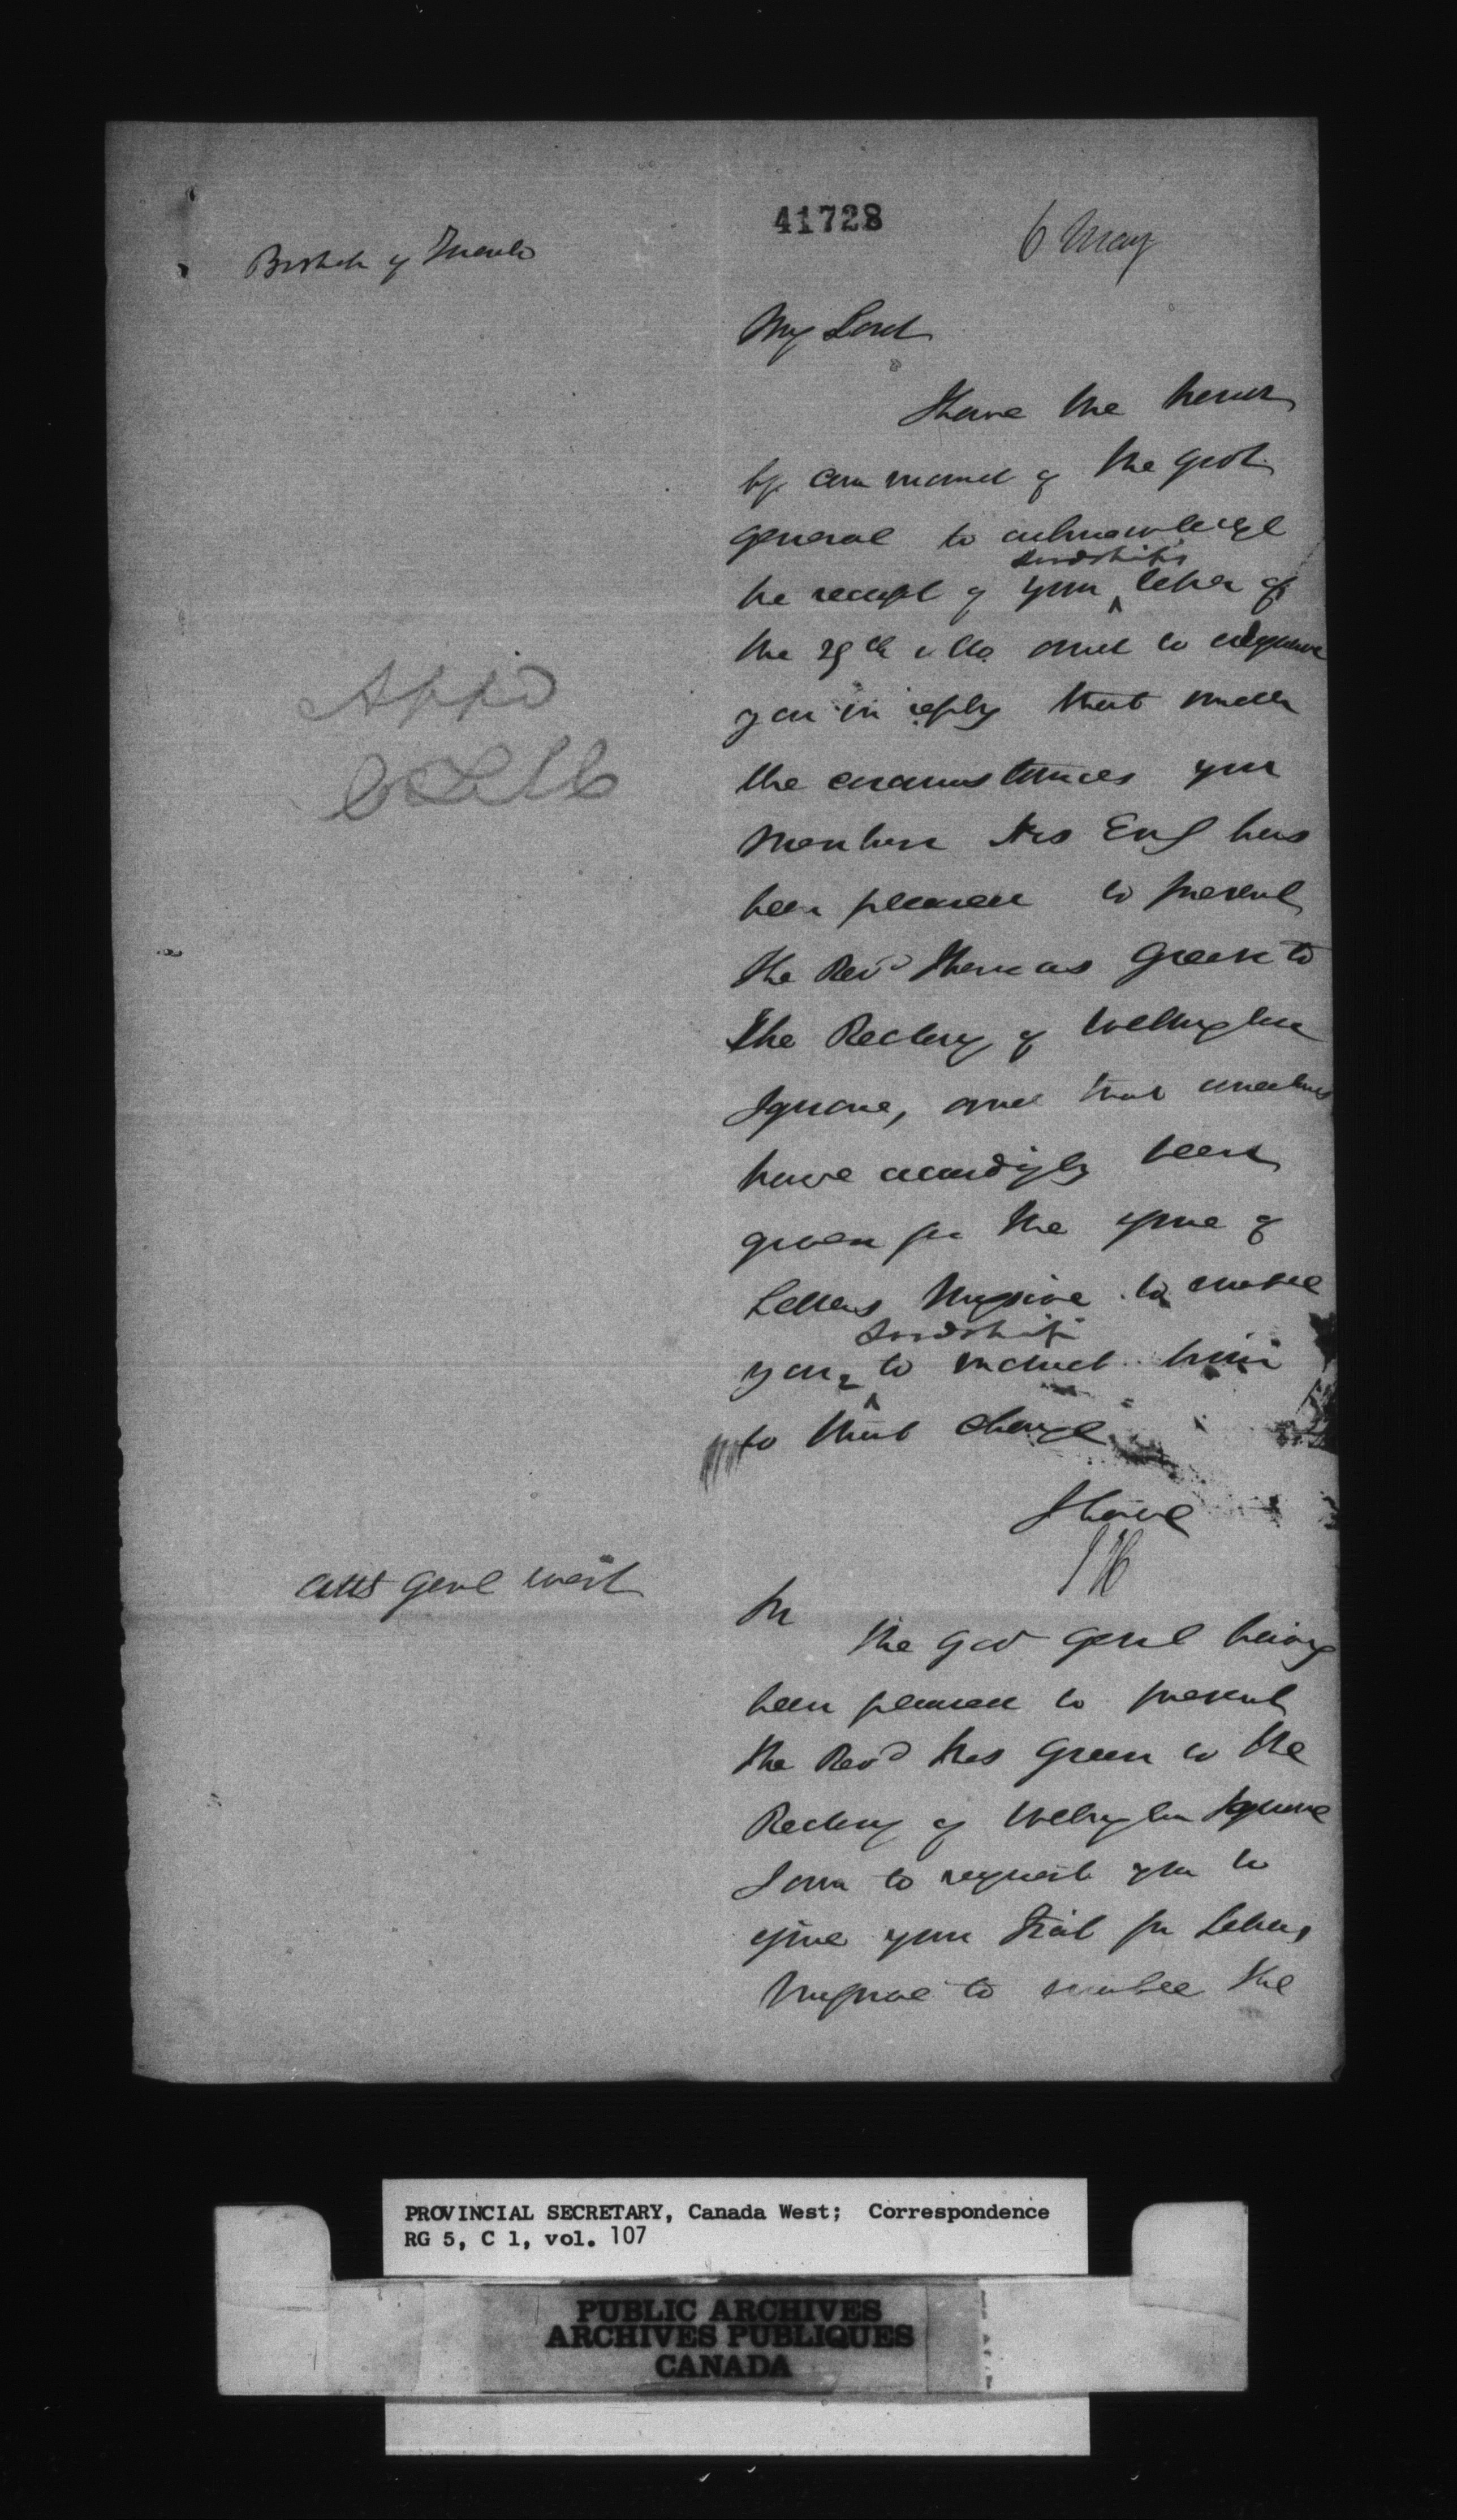 41728
6 May
Bishop of Toronto
My Lord
I have the honor
by command of the Govr
General to acknowledge
Lordship's
the receipt of your letter of
the 29th ulto and to
you in reply that under
the circumstances you
mention His Exy has
been pleased to present
the Revd Thomas Green to
the Rectory of Wellington
Square, and that directions
have accordingly been
given for the issue of
Letters Missive to enable
Lordship
your to induct him
to that charge
Appd
I have
JH
Atty Genl West
Sir
The Gov Genl having
been pleased to present
the Revd Thos Green to the
Rectory of Wellington Square
I am to request you to
give your fiat for Letters
Missive to enable the
PROVINCIAL SECRETARY, Canada West; Correspondence
RG 5, C 1, vol. 107
PUBLIC ARCHIVES
ARCHIVES PUBLIQUES
CANADA